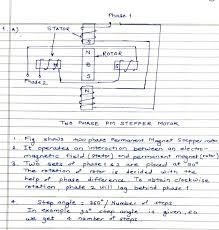 1. a)
Phase 1
STATOR
S
N
ROTOR
N
S
S
Phase 2
N
TWO PHASE PM STEPPER MOTOR
1. Fig. shows two phase Permanent Magnet Stepper motor
2. It operates on interaction between an electro-
magnetic field (stator) and permanent magnet (rotor)
3. Two sets of phase 1 & 2 are placed at 90°
The rotation of rotor is decided with the
help of phase difference. To obtain clockwise
rotation, phase 2 will lag behind phase 1.
4. Step angle = 360° / Number of steps
In example step angle is given, so
we get 4 number of steps